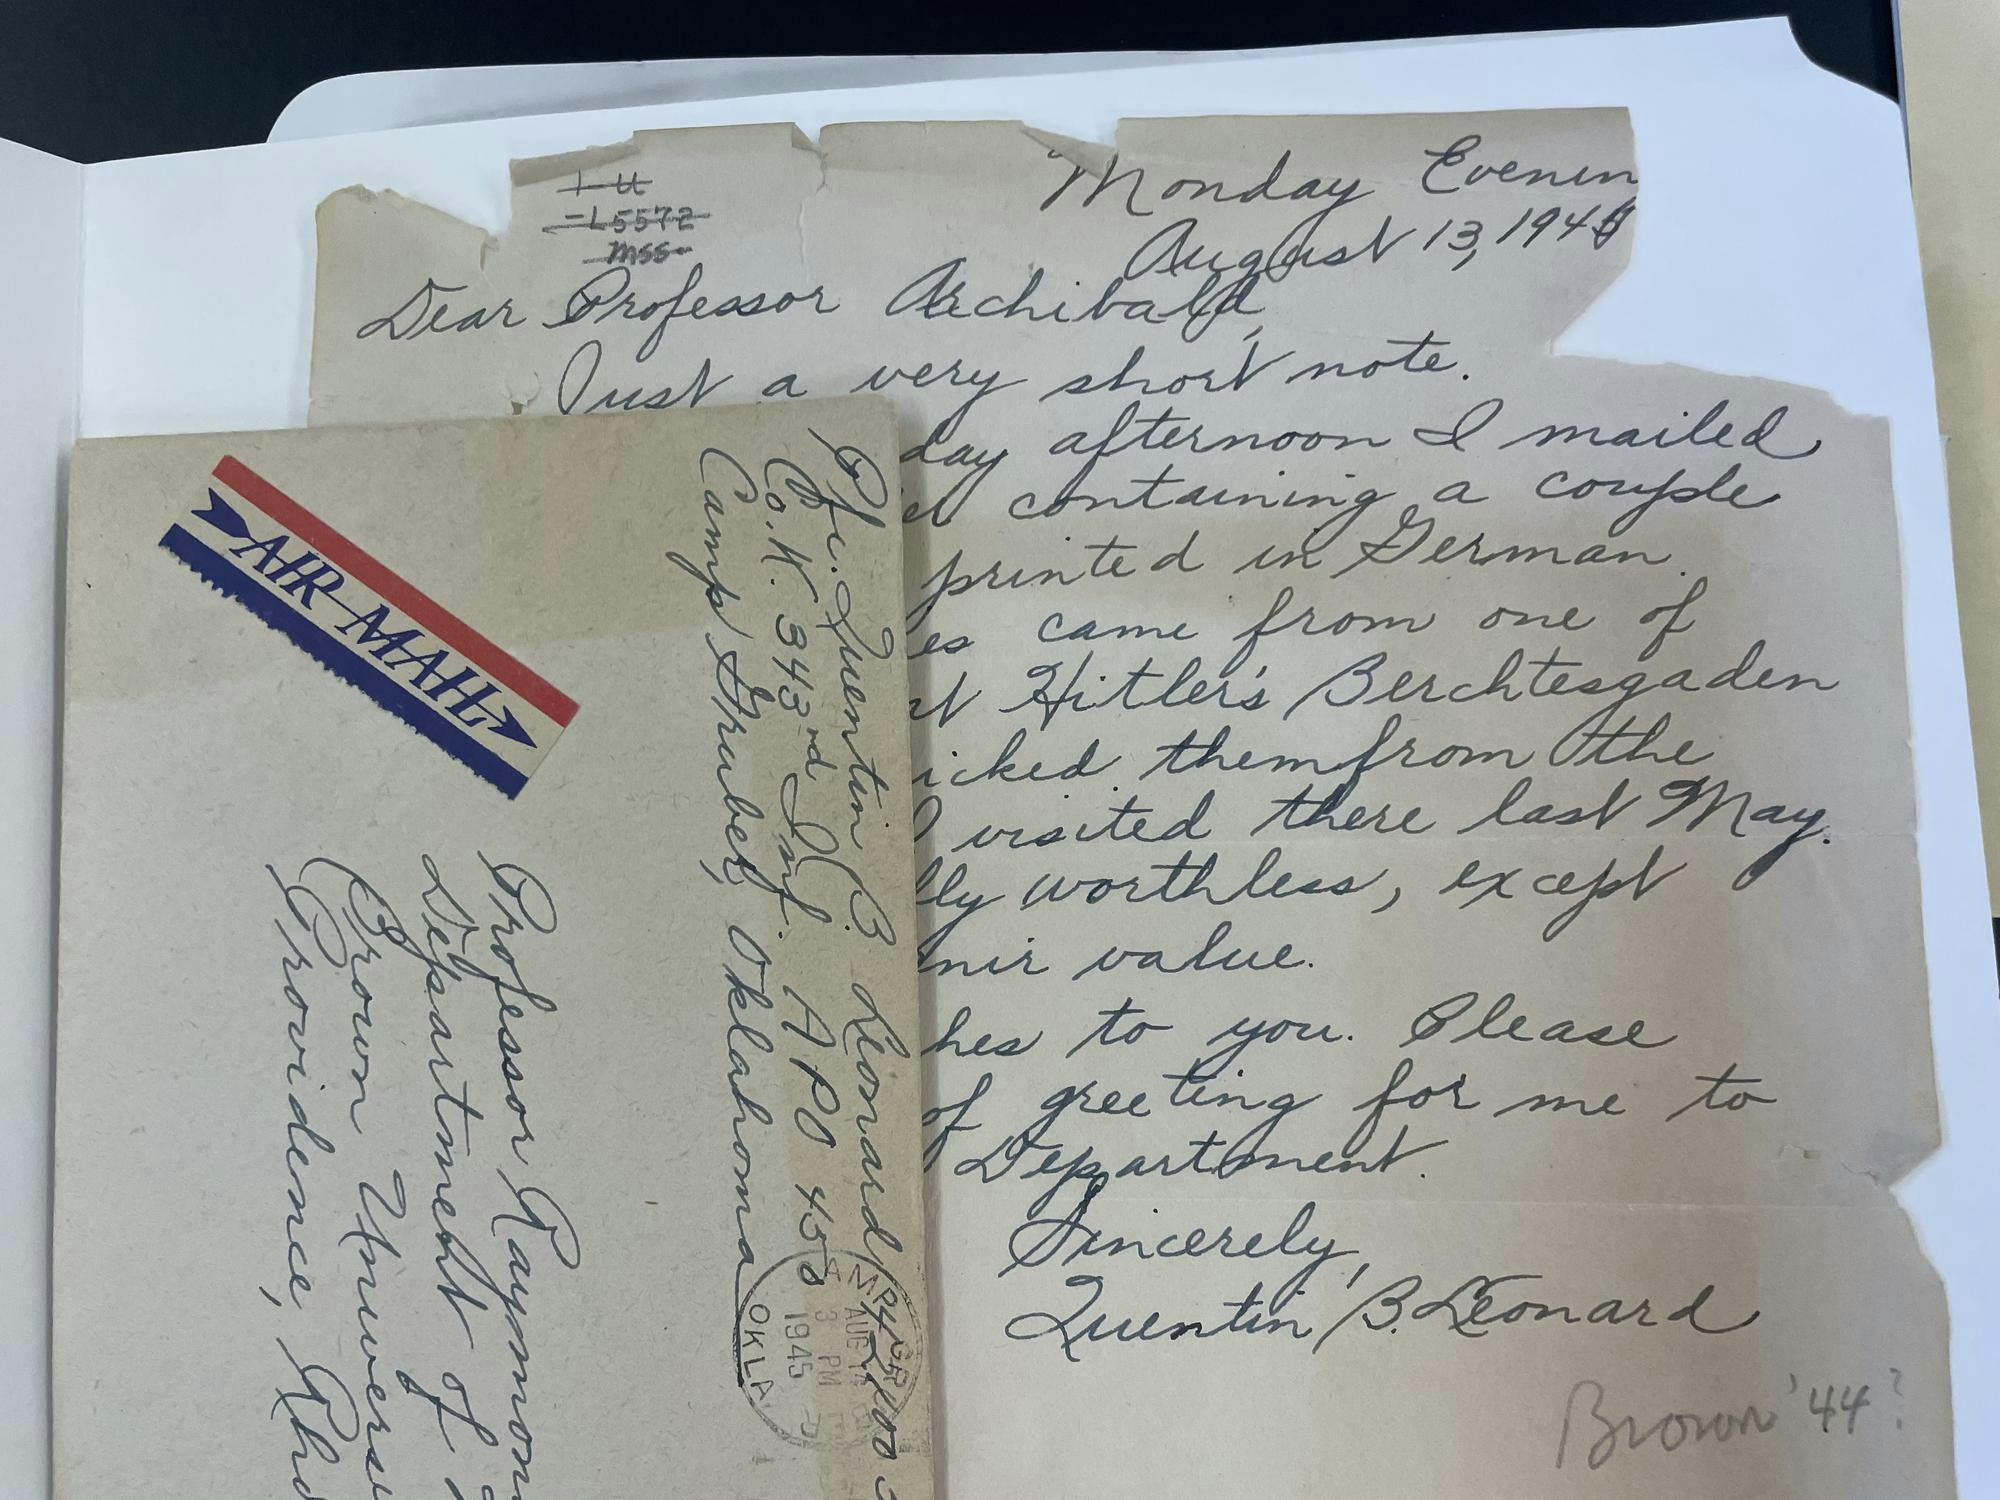 Monday Evenin
August 13, 194
L5572
mss
Dear Professor Archibald,
Just a very short note.
day afternoon I mailed
containing a couple
printed in German.
es came from one of
Hitler's Berchtesgaden
icked them from the
I visited there last May.
lly worthless, except
nir value.
hes to you. Please
of greeting for me to
Department.
Sincerely,
Quentin B. Leonard
Brown '44?
AIR MAIL
Pfc. Quentin B. Leonard
Co. K. 343rd Inf. APO 450
Camp Gruber, Oklahoma
AUG 14
3 PM
1945
OKLA
Professor Raymon
Department of
Brown Univers
Providence, Rho